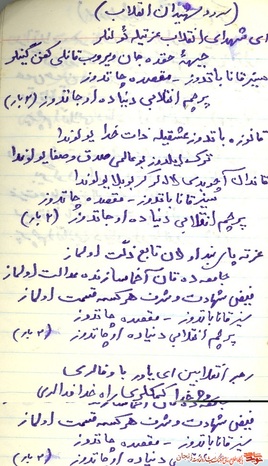 (سرود شهیدان انقلاب)
ای شهدای انقلاب عزتیله ئولنلر
جبهۀ حقده جان ویروب قانلی کفن گینلر
سیز قانا باتدوز - مقصده چاتدوز
پرچم انقلابی دنیاده اوجاتدوز (۲ بار)
قانوزه باتدوز عشقیله ذات خدا یولوندا
ترک ایلدوز بو عالمی صدق و صفا یولوندا
قاندان آچوبدی لاله لر کربلا یولوندا
سیز قانا باتدوز - مقصده چاتدوز
پرچم انقلابی دنیاده اوجاتدوز (۲ بار)
عزته پابند اولان تابع ذلت اولماز
جامعه ده قان آخماسا زنده عدالت اولماز
فیض شهادت و شرف هر کسه قسمت اولماز
سیز قانا باتدوز - مقصده چاتدوز
پرچم انقلابی دنیاده اوجاتدوز (۲ بار)
رهبر انقلابین ای یاور با وفالری
راه خدا فدالری
فیض شهادت و شرف هر کسه قسمت اولماز
سیز قانا باتدوز - مقصده چاتدوز
دنیاده اوجاتدوز (۲ بار)